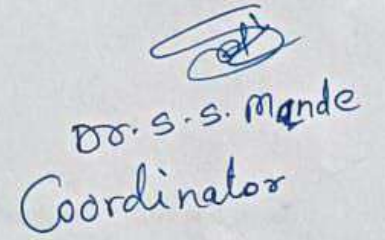 Dr. S. S. Mande
Coordinator